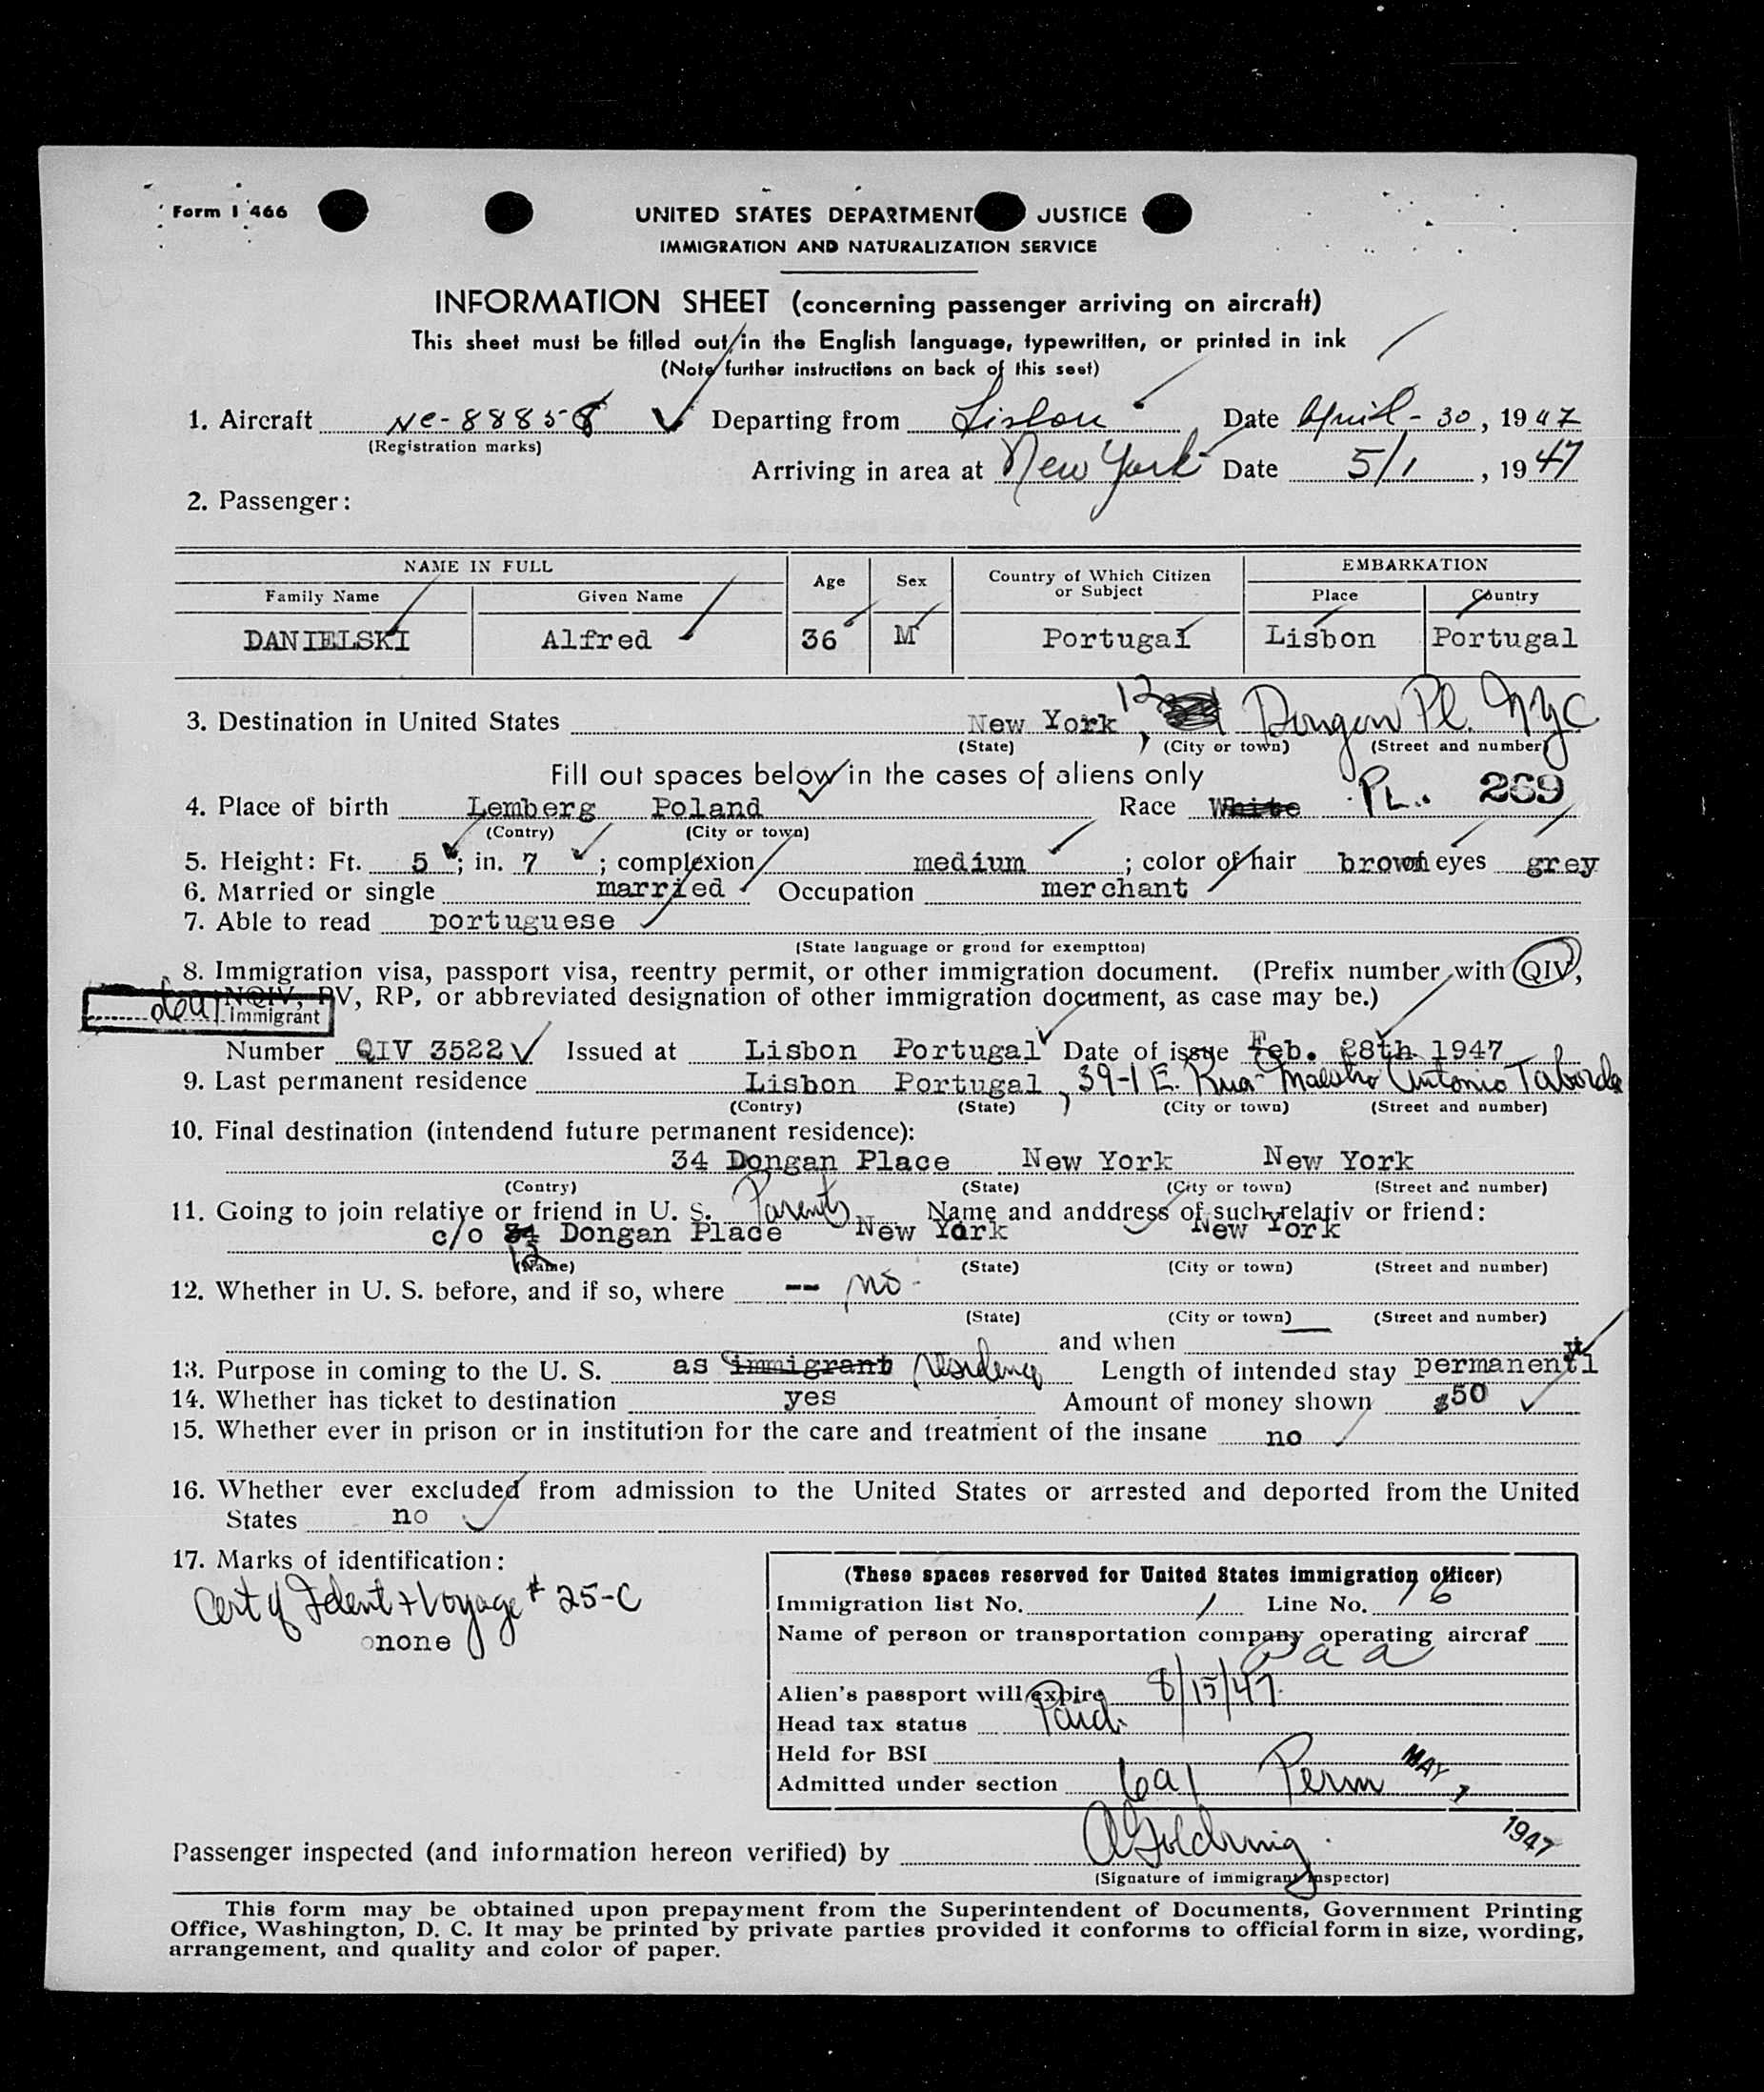 Form I 466
UNITED STATES DEPARTMENT JUSTICE
IMMIGRATION AND NATURALIZATION SERVICE
INFORMATION SHEET (concerning passenger arriving on aircraft)
This sheet must be filled out in the English language, typewritten, or printed in ink
(Note further instructions on back of this seet)
1. Aircraft NC-88858 Departing from Lisbon Date April-30, 1947
(Registration marks)
Arriving in area at New York Date 5/1, 1947
2. Passenger:
NAME IN FULL Age Sex Country of Which Citizen or Subject EMBARKATION
Family Name Given Name Place Country
DANIELSKI Alfred 36 M Portugal Lisbon Portugal
3. Destination in United States New York, 12 Dongan Pl. NYC
(State) (City or town) (Street and number)
Fill out spaces below in the cases of aliens only
4. Place of birth Lemberg Poland Race White PL. 269
(Contry) (City or town)
5. Height: Ft. 5; in. 7; complexion medium; color of hair brown eyes grey
6. Married or single married Occupation merchant
7. Able to read portuguese
(State language or groud for exemptton)
8. Immigration visa, passport visa, reentry permit, or other immigration document. (Prefix number with QIV,
NQIV, PV, RP, or abbreviated designation of other immigration document, as case may be.)
6a1 Immigrant
Number QIV 3522 Issued at Lisbon Portugal Date of issue Feb. 28th 1947
9. Last permanent residence Lisbon Portugal, 39-1 E. Rua Maestro Antonio Taborda
(Contry) (State) (City or town) (Street and number)
10. Final destination (intendend future permanent residence):
34 Dongan Place New York New York
(Contry) (State) (City or town) (Street and number)
11. Going to join relative or friend in U. S. Parents Name and anddress of such relativ or friend:
c/o 34 Dongan Place New York New York
12
(Name) (State) (City or town) (Street and number)
12. Whether in U. S. before, and if so, where -- no
(State) (City or town) (Street and number)
and when
13. Purpose in coming to the U. S. as immigrant residence Length of intended stay permanentl
14. Whether has ticket to destination yes Amount of money shown $50
15. Whether ever in prison or in institution for the care and treatment of the insane no
16. Whether ever excluded from admission to the United States or arrested and deported from the United
States no
17. Marks of identification:
Cert of Ident + Voyage # 25-C
none
(These spaces reserved for United States immigration officer)
Immigration list No. 1 Line No. 16
Name of person or transportation company operating aircraf
paa
Alien's passport will expire 8/15/47.
Head tax status Paid.
Held for BSI
Admitted under section 6a1 Perm MAY 1 1947
Passenger inspected (and information hereon verified) by AGoldring
(Signature of immigrant inspector)
This form may be obtained upon prepayment from the Superintendent of Documents, Government Printing
Office, Washington, D. C. It may be printed by private parties provided it conforms to official form in size, wording,
arrangement, and quality and color of paper.